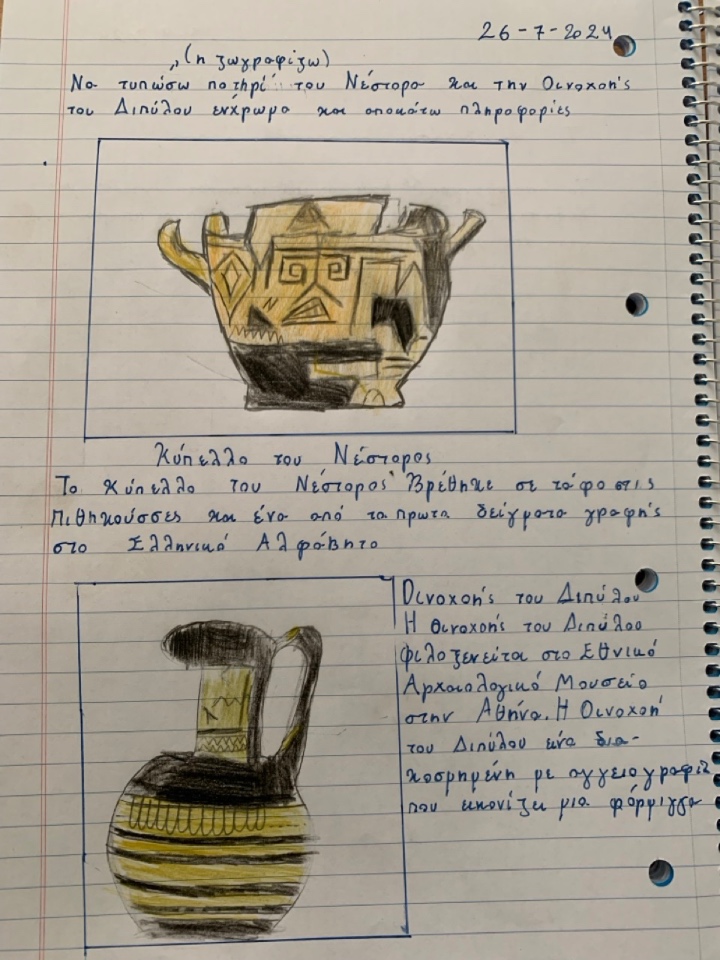 26-7-2024
(η ζωγραφίζω)
Να τυπώσω ποτηρί του Νέστορα και την Οινοχοής
του Διπύλου ενχρωμα και αποκάτω πληροφορίες
Κύπελλο του Νέστορος
Το Κύπελλο του Νέστορος Βρέθηκε σε τάφο στις
Πιθηκούσσες και ένα από τα πρωτα δείγματα γραφής
στο Ελληνικό Αλφάβητο
Οινοχοής του Διπύλου
Η Οινοχοής του Διπύλου
φιλοξενείται στο Εθνικό
Αρχαιολογικό Μουσείο
στην Αθήνα. Η Οινοχοή
του Διπύλου ένα δια-
κοσμημένη με αγγειογραφία
που εικονίζει μια φόρμιγγα